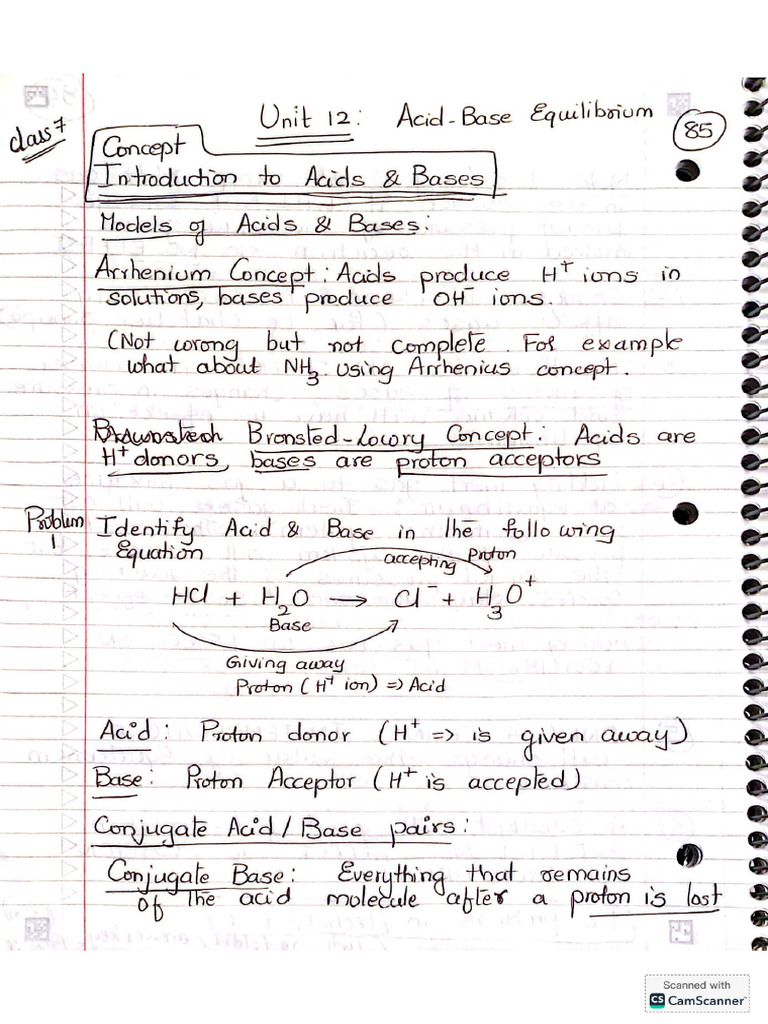 Unit 12: Acid-Base Equilibrium
85
class 7
Concept
Introduction to Acids & Bases
Models of Acids & Bases:
Arrhenium Concept: Acids produce H⁺ ions in
solutions, bases produce OH⁻ ions.
(Not wrong but not complete. For example
what about NH₃ using Arrhenius concept.
Bronsted-Lowry Concept: Acids are
H⁺ donors, bases are proton acceptors
Problem
1
Identify Acid & Base in the following
Equation
accepting Proton
HCl + H₂O → Cl⁻ + H₃O⁺
Base
Giving away
Proton (H⁺ ion) => Acid
Acid: Proton donor (H⁺ => is given away)
Base: Proton Acceptor (H⁺ is accepted)
Conjugate Acid/Base pairs:
Conjugate Base: Everything that remains
of the acid molecule after a proton is lost
Scanned with
CS CamScanner